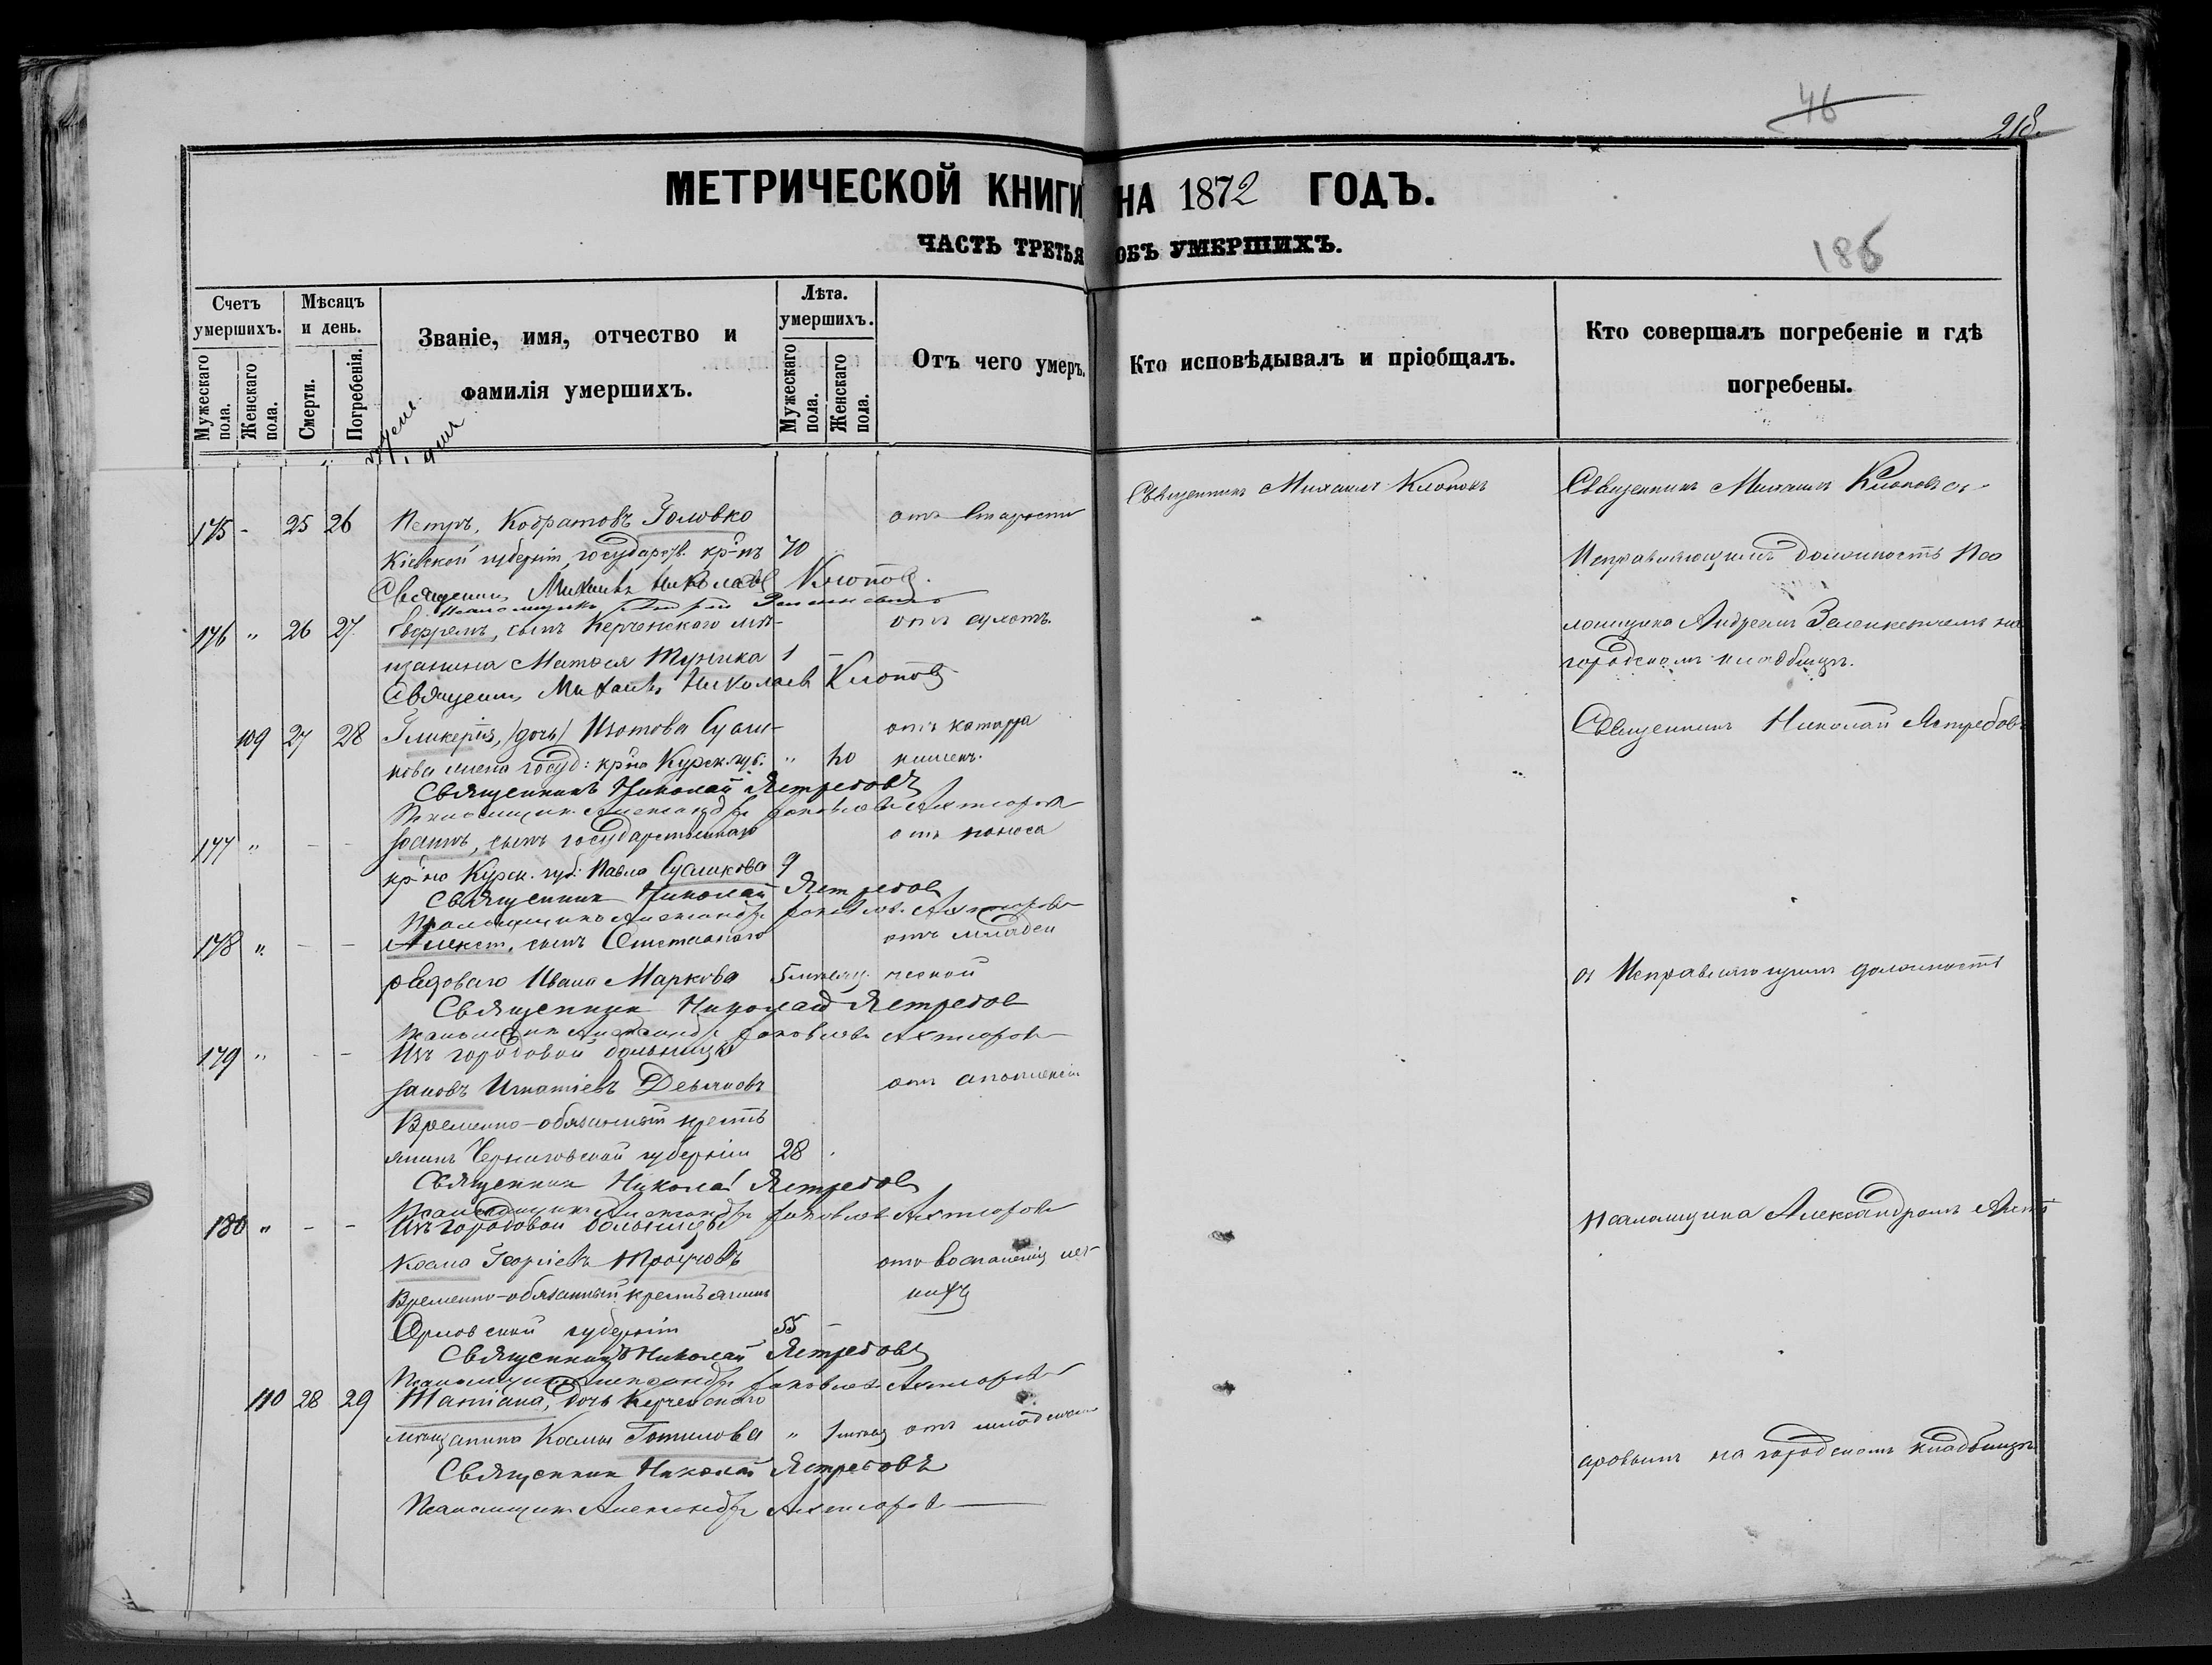 46
218.
МЕТРИЧЕСКОЙ КНИГИ НА 1872 ГОДЪ.
ЧАСТЬ ТРЕТЬЯ ОБЪ УМЕРШИХЪ.
186
Счетъ умершихъ.
Мужескаго пола.
Женскаго пола.
Мѣсяцъ и день.
Смерти.
Погребенія.
Званіе, имя, отчество и
фамилія умершихъ.
Лѣта. умершихъ.
Мужескаго пола.
Женскаго пола.
Отъ чего умеръ.
Кто исповѣдывалъ и пріобщалъ.
Кто совершалъ погребеніе и гдѣ
погребены.
Священникъ Михаилъ Клоповъ
Священникъ Михаилъ Клоповъ съ
175 - 25 26 Петръ, Кодратовъ Головко отъ старости
Кіевской губерніи, государств. кр-нъ 70
Исправляющимъ должность Пса
Священникъ Михаилъ Николаевъ Клоповъ.
Псаломщикъ Андрей
176 " 26 27 Евфремъ, сынъ Керченскаго мѣ- отъ сухотъ.
ломщика Андреемъ Зеленкевичемъ на
щанина Матѳея Туника 1 -
городскомъ кладбищѣ.
Священникъ Михаилъ Николаевъ Клоповъ
109 27 28 Гликерія, (дочь) Изотова Суши- отъ катарра
Священникъ Николай Ястребовъ
кова жена госуд: кр-на Курск. губ. " 20 кишекъ.
Священникъ Николай Ястребовъ
Псаломщикъ Александръ Яковлевъ Ахтыровъ
177 " - - Іоаннъ, сынъ государственнаго отъ поноса
кр-на Курск. губ. Павла Сушкова 9
Священникъ Николай Ястребовъ
Псаломщикъ Александръ Яковлевъ Ахтыровъ
178 " - - Алексѣй, сынъ Отставного отъ младен
рядоваго Ивана Маркова 5 мѣсяц. ческой
съ Исправляющимъ должность
Священникъ Николай Ястребовъ
Псаломщикъ Александръ Яковлевъ Ахтыровъ
179 " - - Изъ городовой больницы
Іаковъ Игнатіевъ Демяновъ отъ апоплексіи
Временно-обязанный кресть
янинъ Черниговской губерніи 28
Священникъ Николай Ястребовъ
Псаломщикъ Александръ Яковлевъ Ахтыровъ
180 " - - Изъ городовой больницы
псаломщика Александромъ Ахты
Косма Георгіевъ отъ воспаленія лег
Временно-обязанный крестьянинъ кихъ
Орловской губерніи 55 -
Священникъ Николай Ястребовъ
Псаломщикъ Александръ Яковлевъ Ахтыровъ
110 28 29 Татіана, дочь Керченскаго
мѣщанина Космы Гопилова " отъ младенч
аровымъ на городскомъ кладбищѣ
Священникъ Николай Ястребовъ
Псаломщикъ Александръ Ахтыровъ